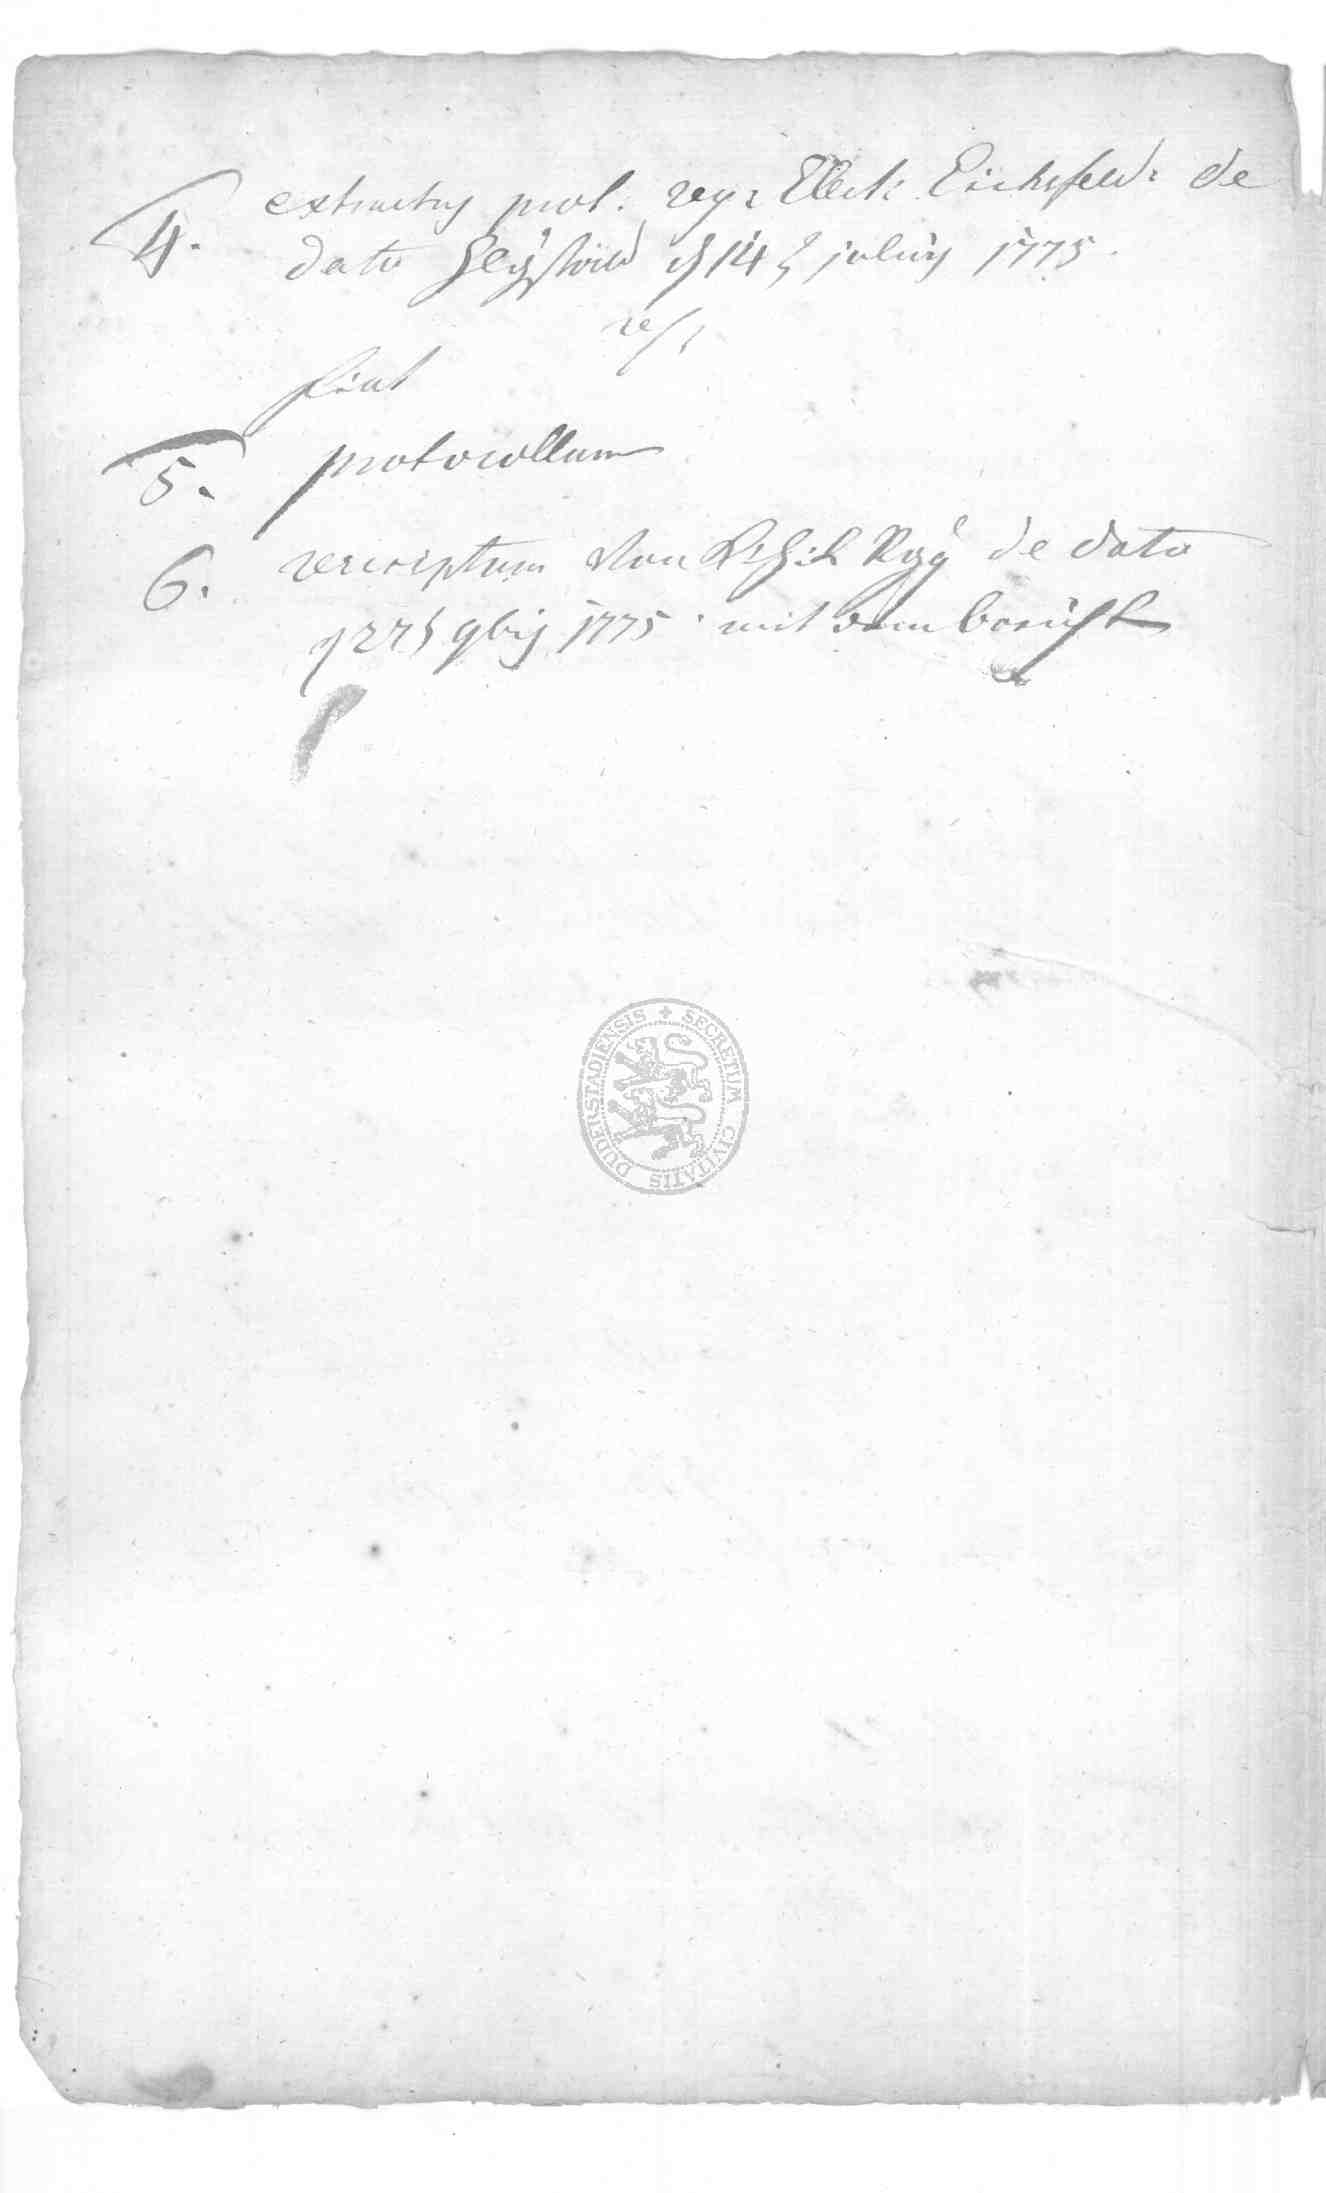 4. extractus prot. reg: Elect: Eichsfeld: de
dato Heÿstadt d 14 t julÿ 1775.
res:
fiat
5. protocollum
6. rescriptum von de dato
d 27t 9bris 1775 mit dem bericht
SECRETUM CIVITATIS DUDERSTADIENSIS